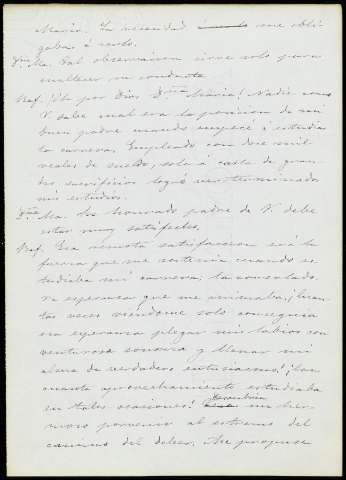 María. La necesidad me obli-
gaba á serlo.
Dña Ma. Tal observacion sirve solo para
enaltecer su conducta
Raf. ¡Oh por Dios Dña María! Nadie como
V. sabe cual era la posicion de mi
buen padre cuando empecé á estudiar
la carrera; Empleado con doce mil
reales de sueldo, solo á costa de gran-
des sacrificios logró ver terminados
mis estudios.
Dña Ma. Su honrado padre de V. debe
estar muy satisfecho.
Raf. Esa remota satisfaccion era la
fuerza que me sostenia cuando es-
tudiaba mi carrera; la consolado-
ra esperanza que me animaba. ¡Cuan-
tas veces viendome solo conseguia
esa esperanza plegar mis labios con
venturosa sonrisa y llenar mi
alma de verdadero entusiasmo! ¡Con
cuanto aprovechamiento estudiaba
en tales ocasiones! Descubria un her-
moso porvenir al estremo del
camino del deber; Me propuse